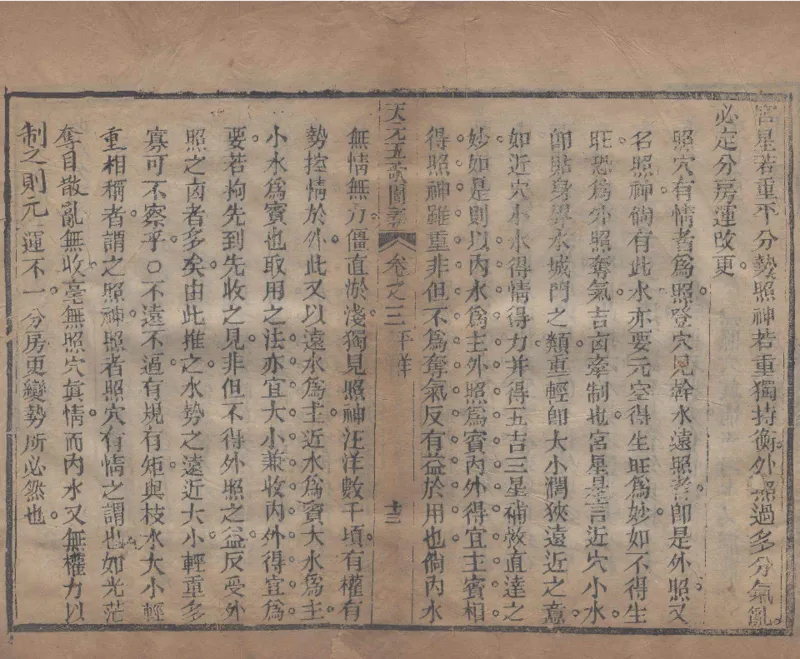 宮星若重平分勢照神若重獨持衡外照過多分氣亂
必定分房運改更
照穴有情者為照登穴見幹水遠照者即是外照又
名照神倘有此水亦要元空得生旺為妙如不得生
旺恐為外照奪氣吉凶牽制也宮星是言近穴小水
即貼身界水城門之類重輕即大小濶狹遠近之意
如近穴小水得情得力并得五吉三星補救直達之
妙如是則以內水為主外照為賓內外得宜主賓相
得照神雖重非但不為奪氣反有益於用也倘內水
天元五歌闡義 卷之三 平洋 十三
無情無力僵直淤淺獨見照神汪洋數千頃有權有
勢控情於外此又以遠水為主近水為賓大水為主
小水為賓也取用之法亦宜大小兼收內外得宜為
要若拘先到先收之見非但不得外照之益反受外
照之凶者多矣由此推之水勢之遠近大小輕重多
寡可不察乎○不遠不逼有規有矩與枝水大小輕
重相稱者謂之照神照者照穴有情之謂也如光茫
奪目散亂無收毫無照穴真情而內水又無權力以
制之則元運不一分房更變勢所必然也